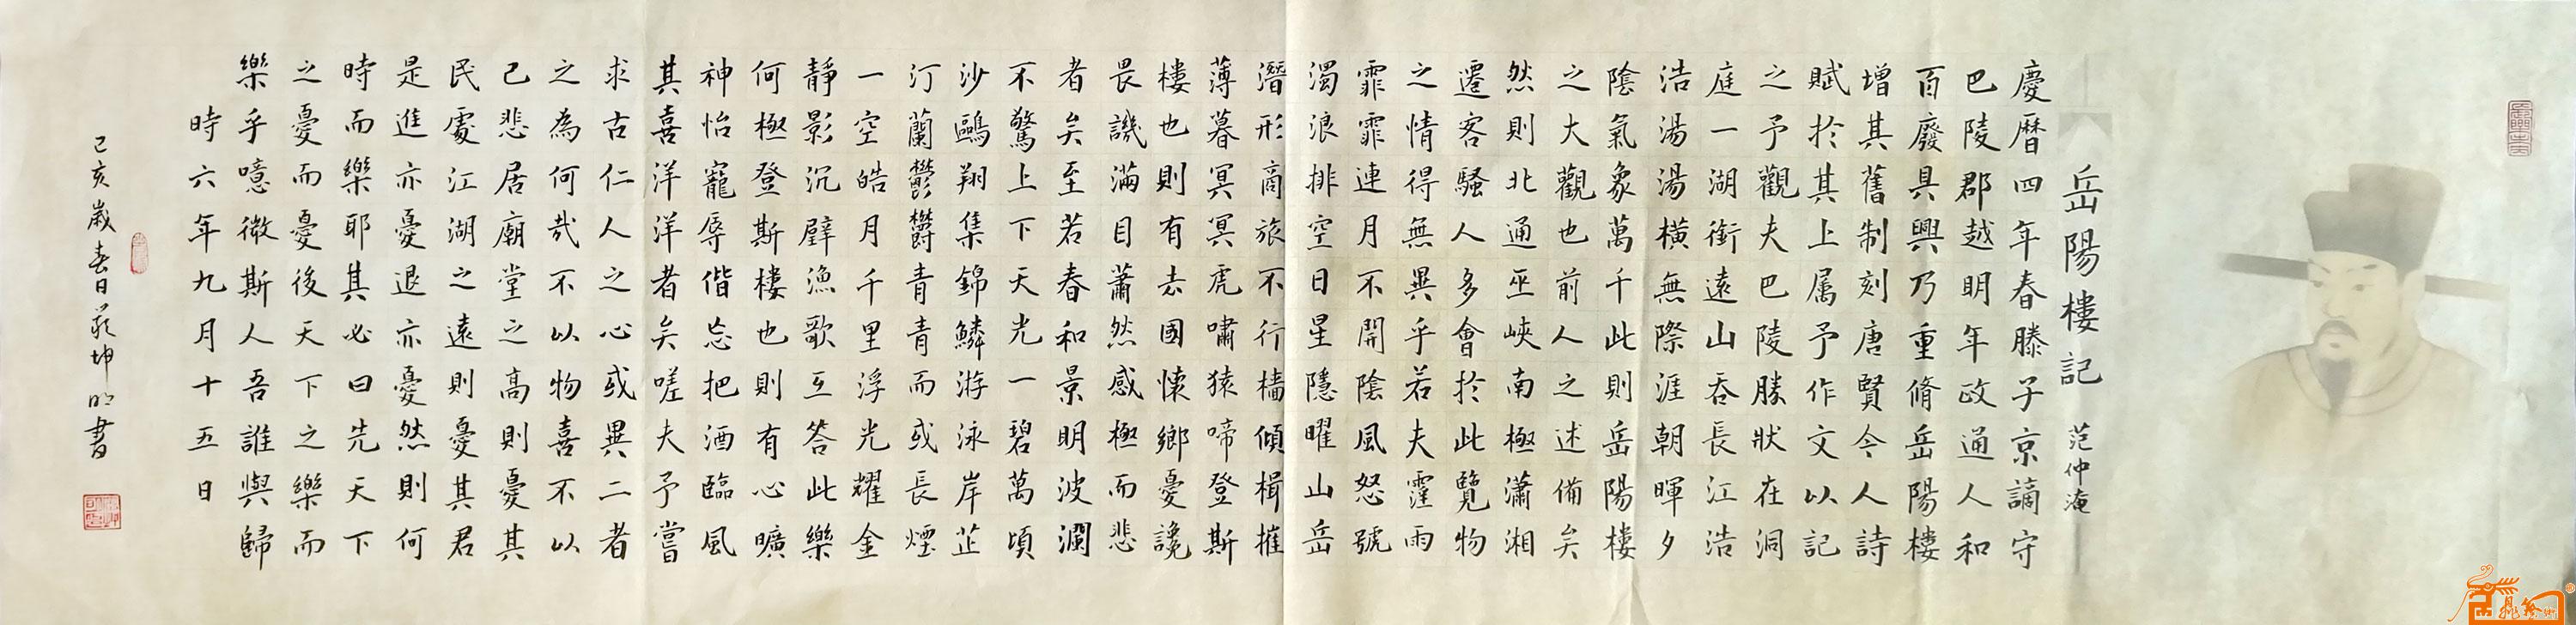 岳陽樓記 范仲淹
慶曆四年春滕子京謫守
巴陵郡越明年政通人和
百廢具興乃重脩岳陽樓
增其舊制刻唐賢今人詩
賦於其上属予作文以記
之予觀夫巴陵勝狀在洞
庭一湖銜遠山吞長江浩
浩湯湯橫無際涯朝暉夕
陰氣象萬千此則岳陽樓
之大觀也前人之述備矣
然則北通巫峽南極瀟湘
遷客騷人多會於此覽物
之情得無異乎若夫霪雨
霏霏連月不開陰風怒號
濁浪排空日星隱曜山岳
潛形商旅不行檣傾楫摧
薄暮冥冥虎嘯猿啼登斯
樓也則有去國懷鄉憂讒
畏譏滿目蕭然感極而悲
者矣至若春和景明波瀾
不驚上下天光一碧萬頃
沙鷗翔集錦鱗游泳岸芷
汀蘭鬱鬱青青而或長煙
一空皓月千里浮光耀金
靜影沉璧漁歌互答此樂
何極登斯樓也則有心曠
神怡寵辱偕忘把酒臨風
其喜洋洋者矣嗟夫予嘗
求古仁人之心或異二者
之為何哉不以物喜不以
己悲居廟堂之高則憂其
民處江湖之遠則憂其君
是進亦憂退亦憂然則何
時而樂耶其必曰先天下
之憂而憂後天下之樂而
樂乎噫微斯人吾誰與歸
時六年九月十五日
己亥歲春日坤明書